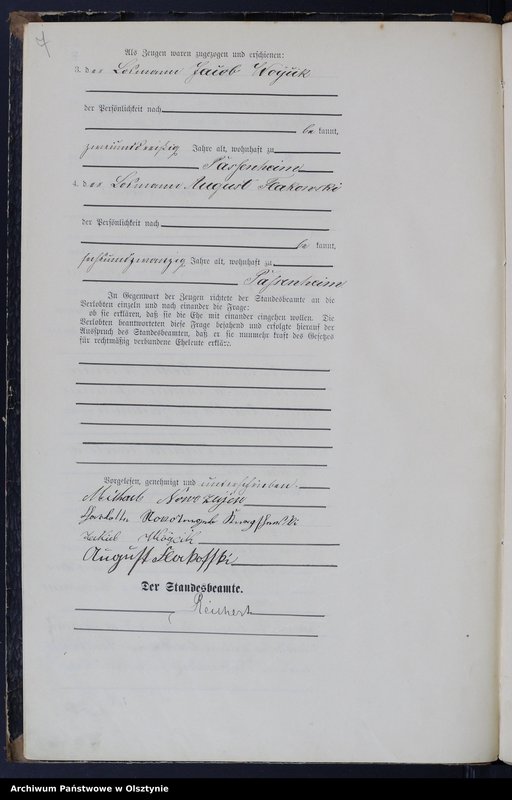 7
Als Zeugen waren zugezogen und erschienen:
3. der Losmann Jacob Woyuk
der Persönlichkeit nach
be kannt,
zweiunddreißig Jahre alt, wohnhaft zu
Passenheim
4. der Losmann August Flakowski
der Persönlichkeit nach
be kannt,
sechsundzwanzig Jahre alt, wohnhaft zu
Passenheim
In Gegenwart der Zeugen richtete der Standesbeamte an die
Verlobten einzeln und nach einander die Frage:
ob sie erklären, daß sie die Ehe mit einander eingehen wollen. Die
Verlobten beantworteten diese Frage bejahend und erfolgte hierauf der
Ausspruch des Standesbeamten, daß er sie nunmehr kraft des Gesetzes
für rechtmäßig verbundene Eheleute erkläre.
Vorgelesen, genehmigt und unterschrieben
Michael
August Flakofski
Der Standesbeamte.
Reichert
Archiwum Państwowe w Olsztynie